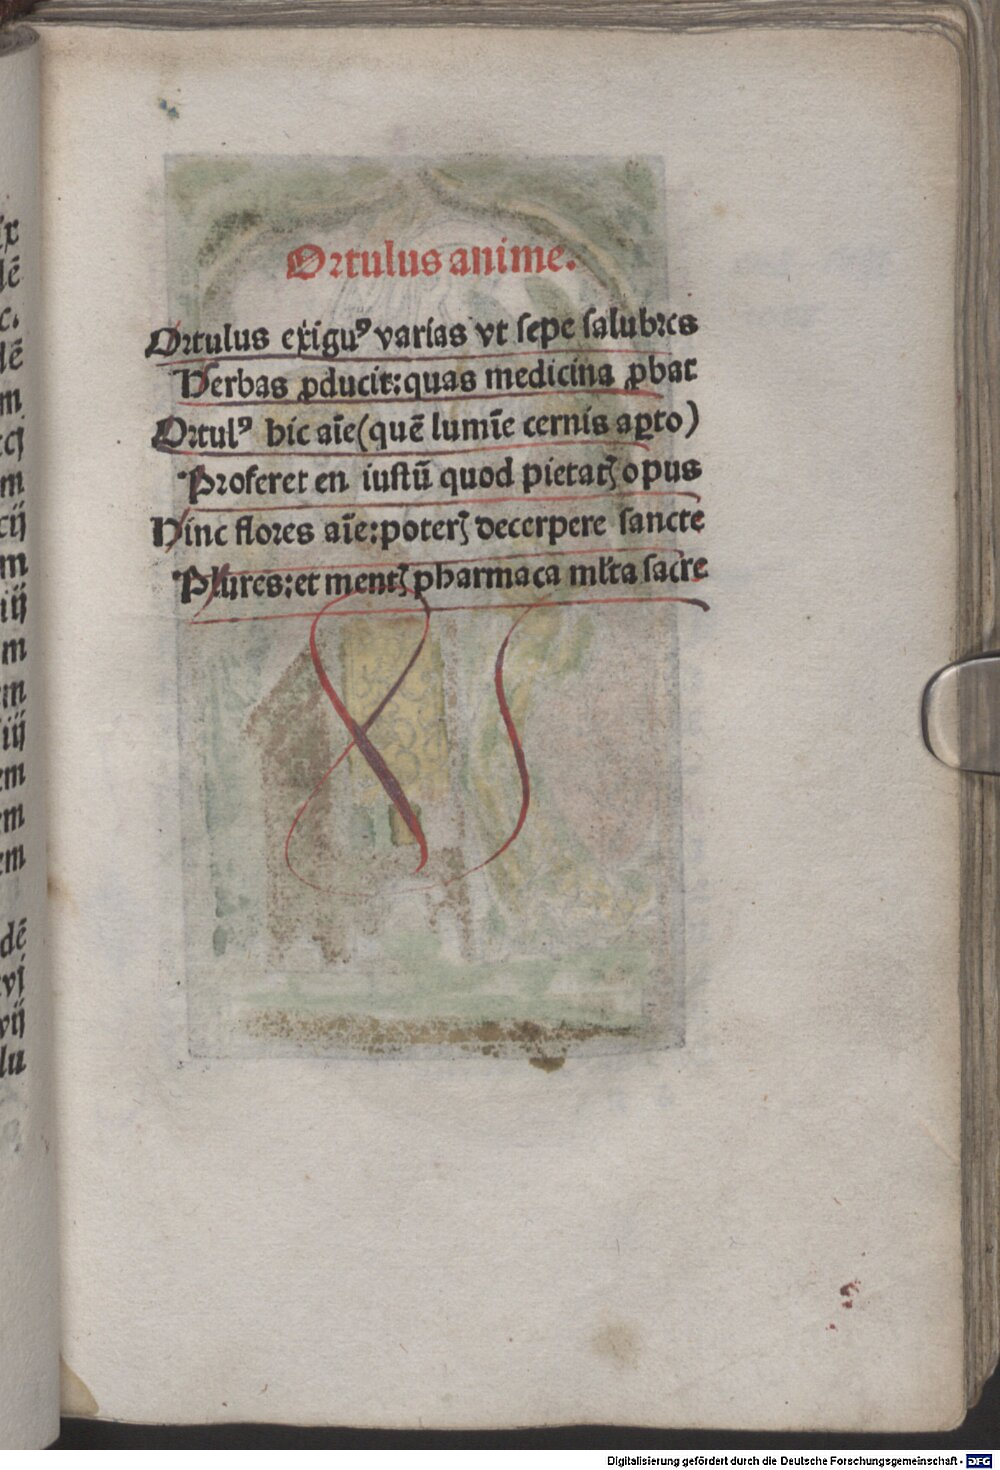 Ortulus anime.
Ortulus exiguꝰ varias vt sepe salubres
Herbas ꝓducit: quas medicina ꝓbat
Ortulꝰ hic aīe (quē lumīe cernis aꝑto)
Proferet en iustū quod pietatꝭ opus
Hinc flores aīe: poterꝭ decerpere sancte
Plures: et mentꝭ pharmaca ml'ta sacre
Digitalisierung gefördert durch die Deutsche Forschungsgemeinschaft - DFG